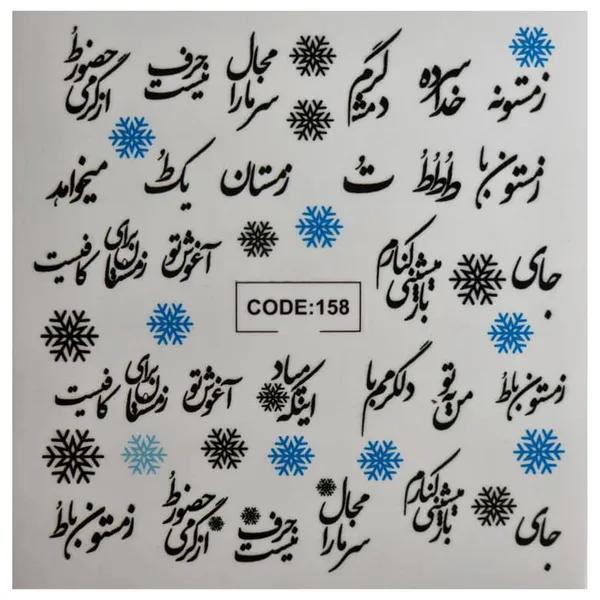 زمستونه خدا سرده دمش گرم مجال سرما را حرف نیست از گرمی حضور طُ
زمستون با طُطُطُ تُ زمستان یک طُ میخواهد
جای بازیش کنارم آغوش تو برای زمستان کافیست
CODE:158
زمستون با ط من به تو دلگرمم با اینکه میاد آغوش تو برای زمستان کافیست
جای کنارم مجال سرما را حرف نیست از گرمی حضور طُ زمستون با طُ